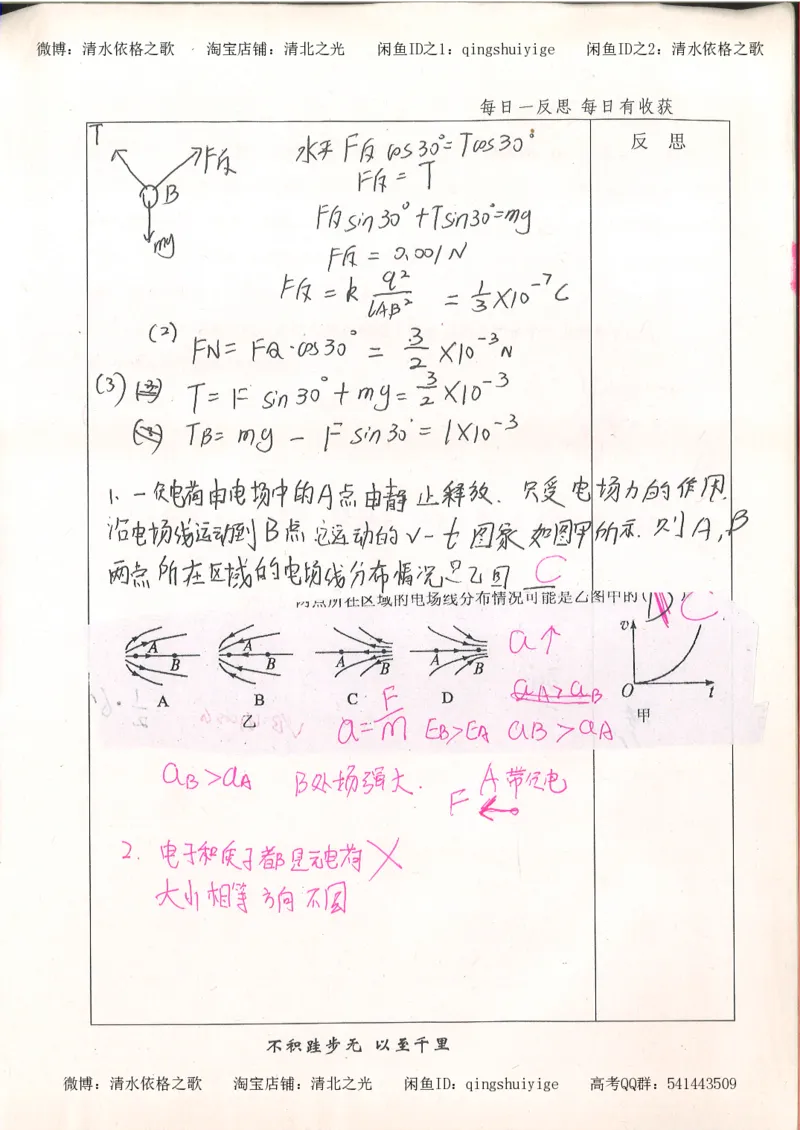 微博：清水依格之歌 淘宝店铺：清北之光 闲鱼ID之1：qingshuiyige 闲鱼ID之2：清水依格之歌
每日一反思 每日有收获
反 思
T
F反
B
mg
水平 F反 cos30°=Tcos30°
F反 = T
F反sin30°+Tsin30°=mg
F反 = 0.001N
F反 = k q²/LAB² = 1/3 ×10⁻⁷C
(2) FN= FQ·cos30° = 3/2 ×10⁻³N
(3) T= F sin30°+mg= 3/2 ×10⁻³
TB= mg - F sin30°= 1×10⁻³
1. 一负电荷由电场中的A点由静止释放. 只受电场力的作用.
沿电场线运动到B点 它运动的v-t图象如图甲所示. 则A,B
两点所在区域的电场线分布情况是乙图 C
两点所在区域的电场线分布情况可能是乙图中的(D) C
A B A B A B A B
A B C D
乙
v
O t
甲
a↑
aA>aB
a=F/m EB>EA aB>aA
aB>aA B处场强大. A带负电
F
2. 电子和质子都是元电荷 ×
大小相等 方向不同
不积跬步无 以至千里
微博：清水依格之歌 淘宝店铺：清北之光 闲鱼ID：qingshuiyige 高考QQ群：541443509